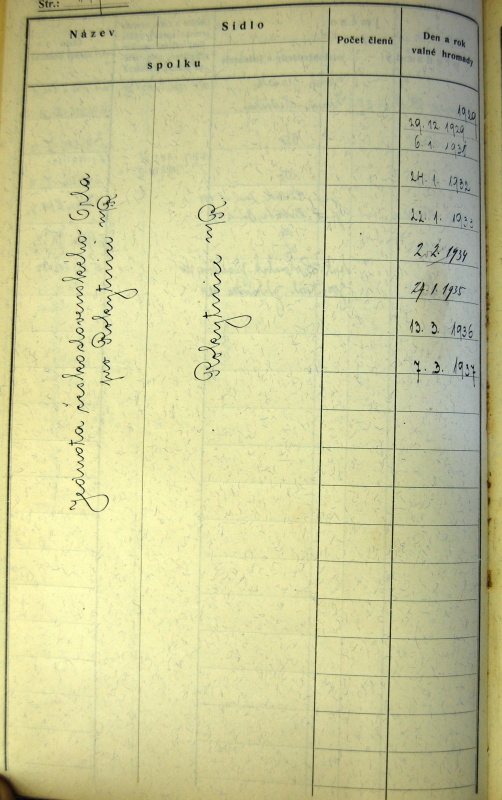 Str.:
Název
Sídlo
spolku
Počet členů
Den a rok
valné hromady
Jednota československého Orla
pro Rokytnici n/R
Rokytnice n/R.
1929
29. 12. 1929
6. 1. 1931
24. 1. 1932
22. 1. 1933
2. 2. 1934
27. 1. 1935
13. 3. 1936
7. 3. 1937